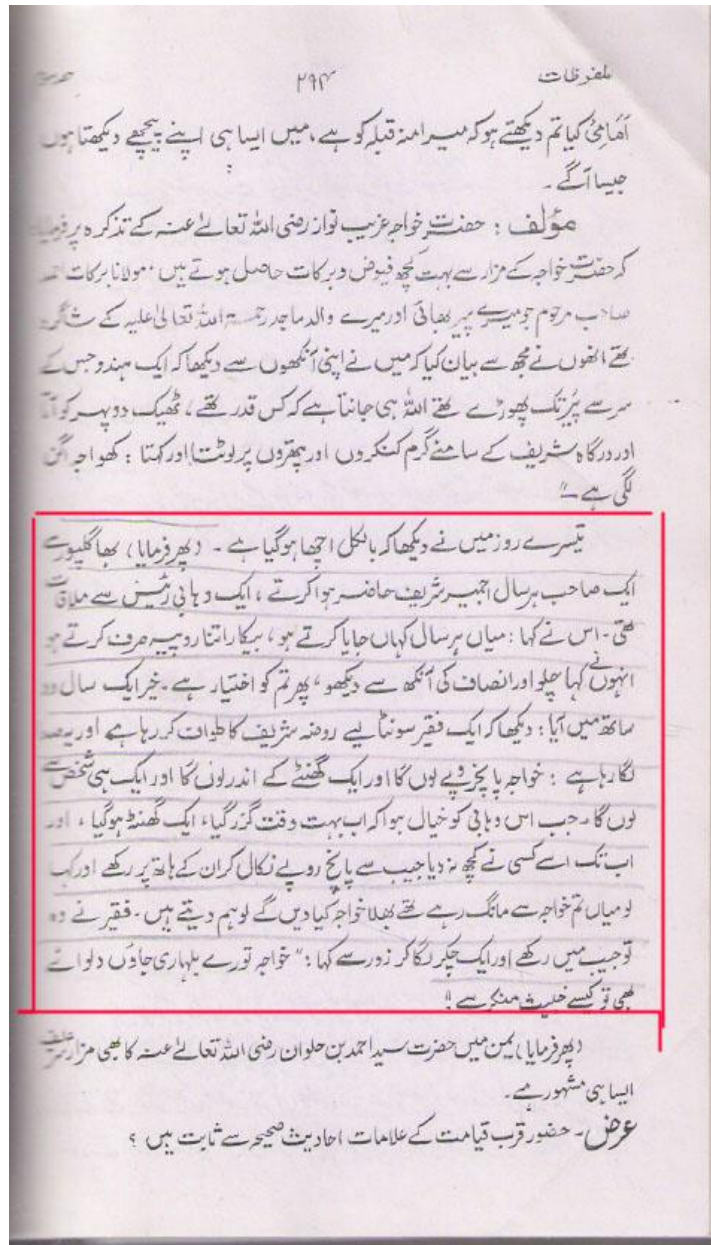 ملفوظات ۲۹۴
اَمَامِیْ کیا تم دیکھتے ہو کہ میرا منہ قبلہ کو ہے، میں ایسا ہی اپنے پیچھے دیکھتا ہوں
جیسا آگے ۔
مؤلف : حضرت خواجہ غریب نواز رضی اللہ تعالےٰ عنہ کے تذکرہ پر فرمایا
کہ حضرت خواجہ کے مزار سے بہت کچھ فیوض و برکات حاصل ہوتے ہیں ۔ مولانا برکات احمد
صاحب مرحوم جو میرے پیر بھائی اور میرے والد ماجد رحمۃ اللہ تعالیٰ علیہ کے شاگرد
تھے انھوں نے مجھ سے بیان کیا کہ میں نے اپنی آنکھوں سے دیکھا کہ ایک ہندو جس کے
سر سے پَیر تک پھوڑے تھے اللہ ہی جانتا ہے کہ کس قدر تھے، ٹھیک دوپہر کو آتا
اور درگاہ شریف کے سامنے گرم کنکروں اور پتھروں پر لوٹتا اور کہتا : کھواجہ اگن
لگی ہے ۔"
تیسرے روز میں نے دیکھا کہ بالکل اچھا ہوگیا ہے ۔ (پھر فرمایا) بھاگلپور سے
ایک صاحب ہر سال اجمیر شریف حاضر ہوا کرتے، ایک وہابی رئیس سے ملاقات
تھی ۔ اس نے کہا : میاں ہر سال کہاں جایا کرتے ہو، بیکار اتنا روپیہ صرف کرتے ہو
انہوں نے کہا چلو اور انصاف کی آنکھ سے دیکھو، پھر تم کو اختیار ہے ۔ خیر ایک سال وہ
ساتھ میں آیا : دیکھا کہ ایک فقیر سونٹا لیے روضہ شریف کا طواف کر رہا ہے اور یہ صدا
لگا رہا ہے : خواجہ پانچ روپے لوں گا اور ایک گھنٹے کے اندر لوں گا اور ایک ہی شخص سے
لوں گا ۔ جب اس وہابی کو خیال ہوا کہ اب بہت وقت گزر گیا، ایک گھنٹہ ہوگیا، اور
اب تک اسے کسی نے کچھ نہ دیا جیب سے پانچ روپے نکال کر ان کے ہاتھ پر رکھے اور کہا
لو میاں تم خواجہ سے مانگ رہے تھے بھلا خواجہ کیا دیں گے لو ہم دیتے ہیں ۔ فقیر نے وہ
تو جیب میں رکھے اور ایک چکر لگا کر زور سے کہا : "خواجہ تورے بلہاری جاؤں دلوائے
بھی تو کیسے خبیث منکر سے"
(پھر فرمایا) یمن میں حضرت سید احمد بن علوان رضی اللہ تعالےٰ عنہ کا بھی مزار
ایسا ہی مشہور ہے ۔
عرض ۔ حضور قرب قیامت کے علامات احادیث صحیحہ سے ثابت ہیں ؟